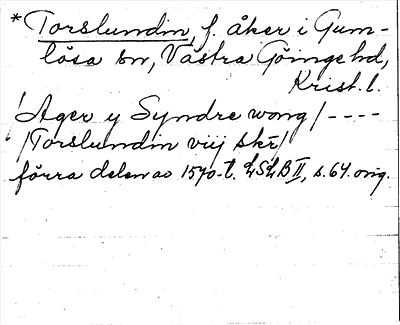 * Torslundin, f. åker i Gum-
lösa sn, Västra Göinge hd,
Krist. l.
! Ager y Syndre wong / ----
/ Torslundin viij skr /
förra delen av 1570-t. LSLB II, s. 64. orig.